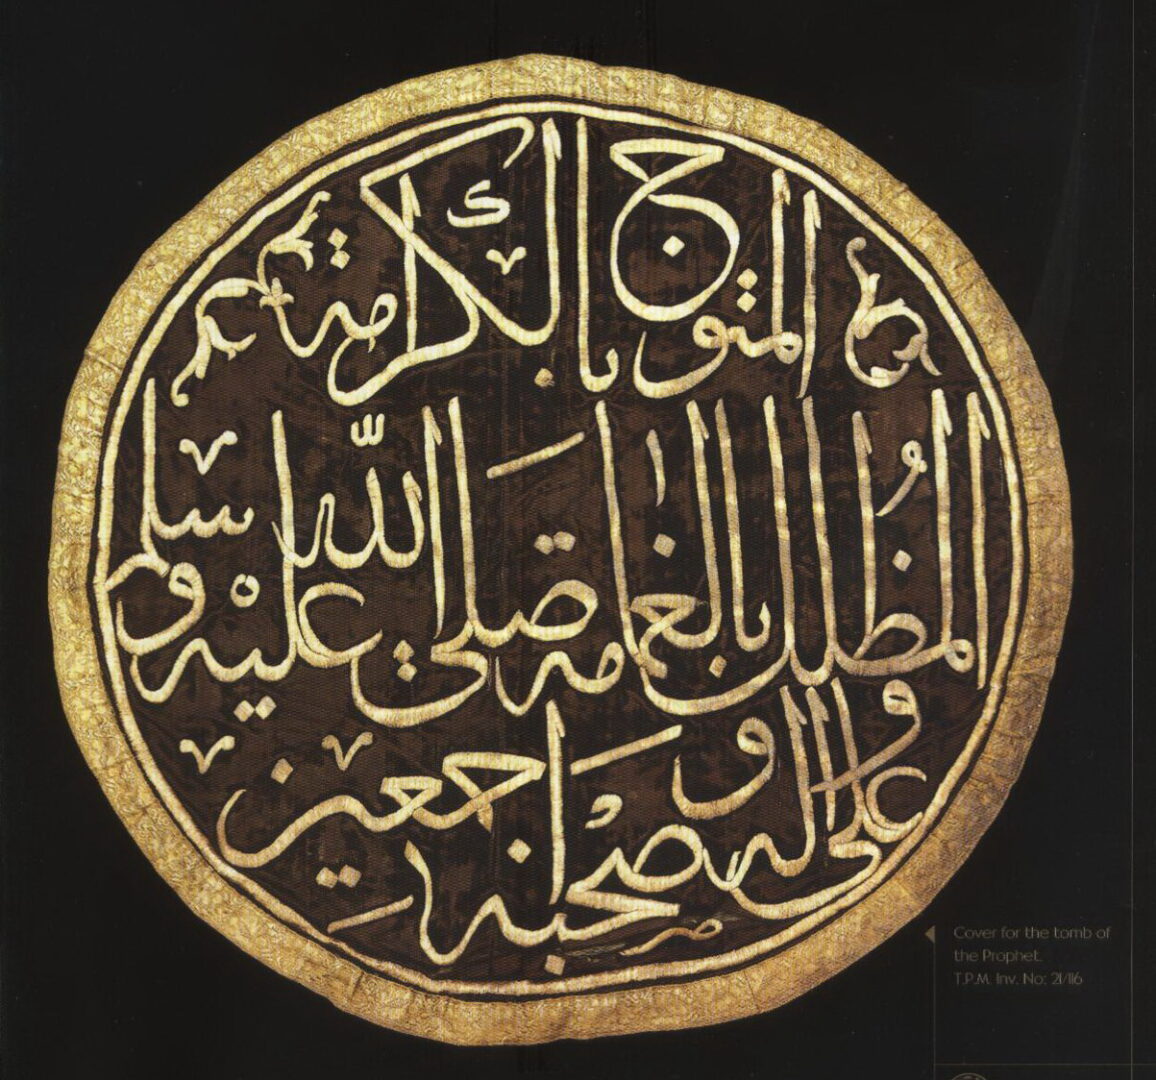 المتوج بالكرامة
المظلل بالغمامة صلى الله عليه وسلم
وعلى اله وصحبه اجمعين
Cover for the tomb of
the Prophet.
T.P.M. Inv. No: 21/116